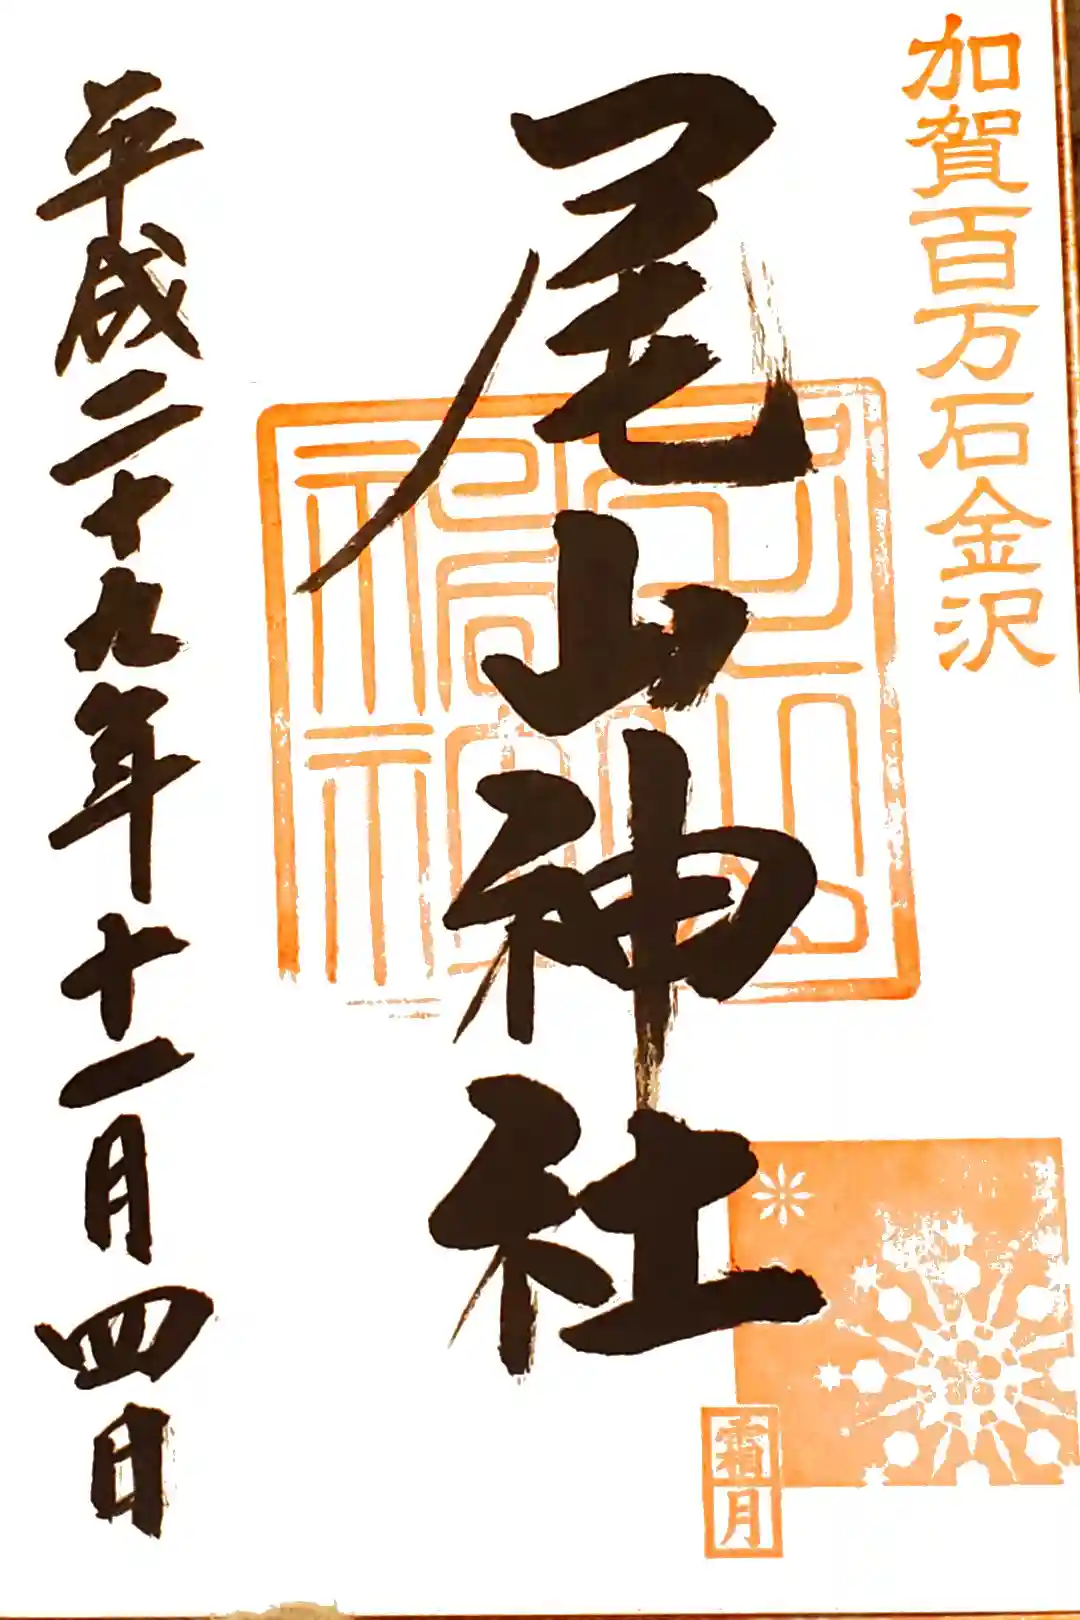 加賀百万石金沢
尾山神社
霜月
平成二十九年十一月四日